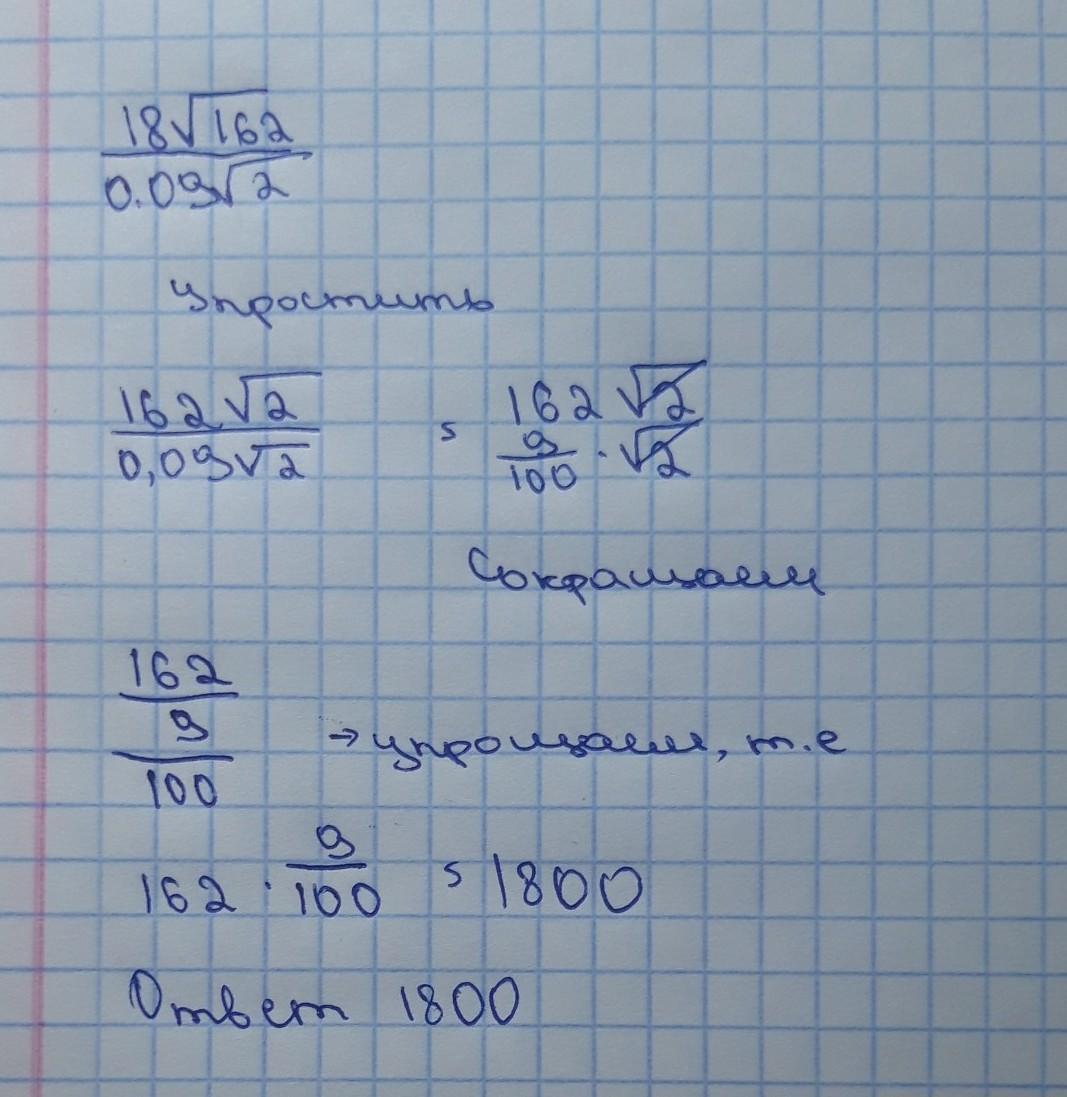 18√162
0.09√2
Упростить
162√2 = 162√2
0,09√2 9/100 · √2
Сокращаем
162
9
100
→ упрощаем, т.е
162 · 9/100 = 1800
Ответ 1800